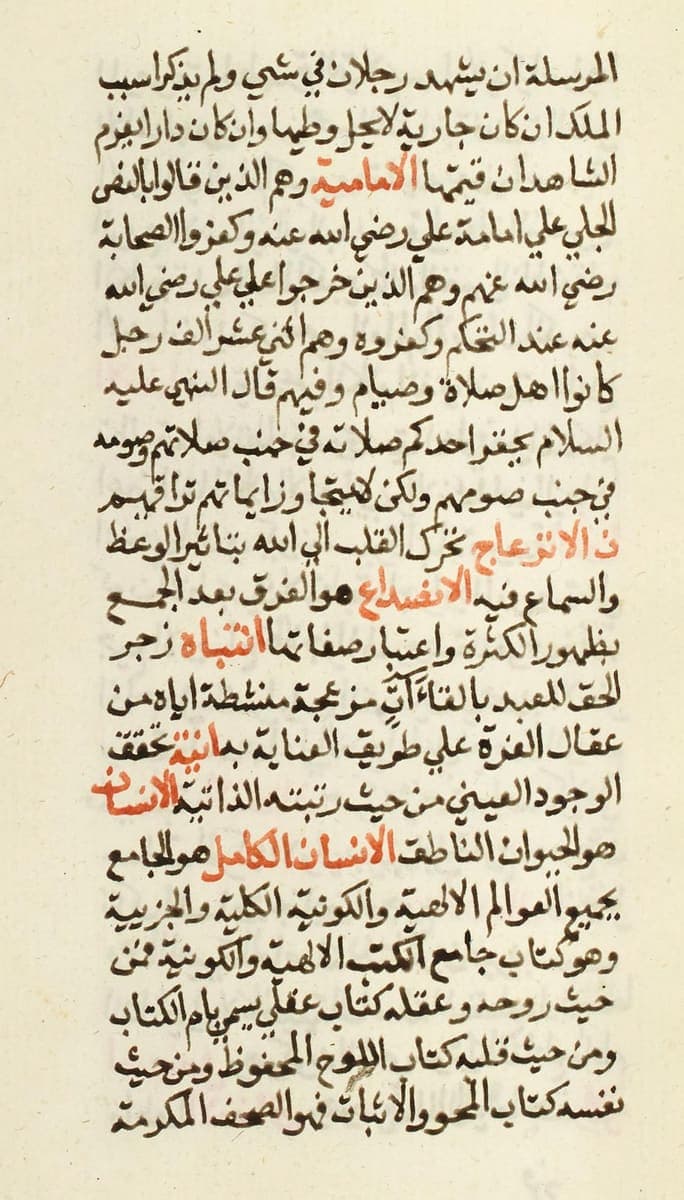 المرسلة ان يشهد رجلان في شي ولم يذكرا سبب
الملك ان كان جارية لا يحل وطيها وان كان دارا يغرم
الشاهدان قيمتها الامامية وهم الذين قالوا بالنص
الجلي علي امامة علي رضي الله عنه وكفروا الصحابة
رضي الله عنهم وهم الذين خرجوا علي علي رضي الله
عنه عند التحكيم وكفروه وهم اثني عشر الف رجل
كانوا اهل صلاة وصيام وفيهم قال النبي عليه
السلام يحقر احدكم صلاته في جنب صلاتهم وصومه
في جنب صومهم ولكن لا يتجاوز ايمانهم تراقيهم
ن الانزعاج تحرك القلب الي الله بتاثير الوعظ
والسماع فيه الانصداع هو الفرق بعد الجمع
بظهور الكثرة واعتبار صفاتها انتباه زجر
الحق للعبد بالقاءات مزعجة منشطة اياه من
عقال الغرة علي طريق العناية به انية تحقق
الوجود العيني من حيث رتبته الذاتية الانسان
هو الحيوان الناطق الانسان الكامل هو الجامع
بجميع العوالم الالهية والكونية الكلية والجزيية
وهو كتاب جامع الكتب الالهية والكونية فمن
حيث روحه وعقله كتاب عقلي يسمي بام الكتاب
ومن حيث قلبه كتاب اللوح المحفوظ ومن حيث
نفسه كتاب المحو والاثبات فهو الصحف المكرمة